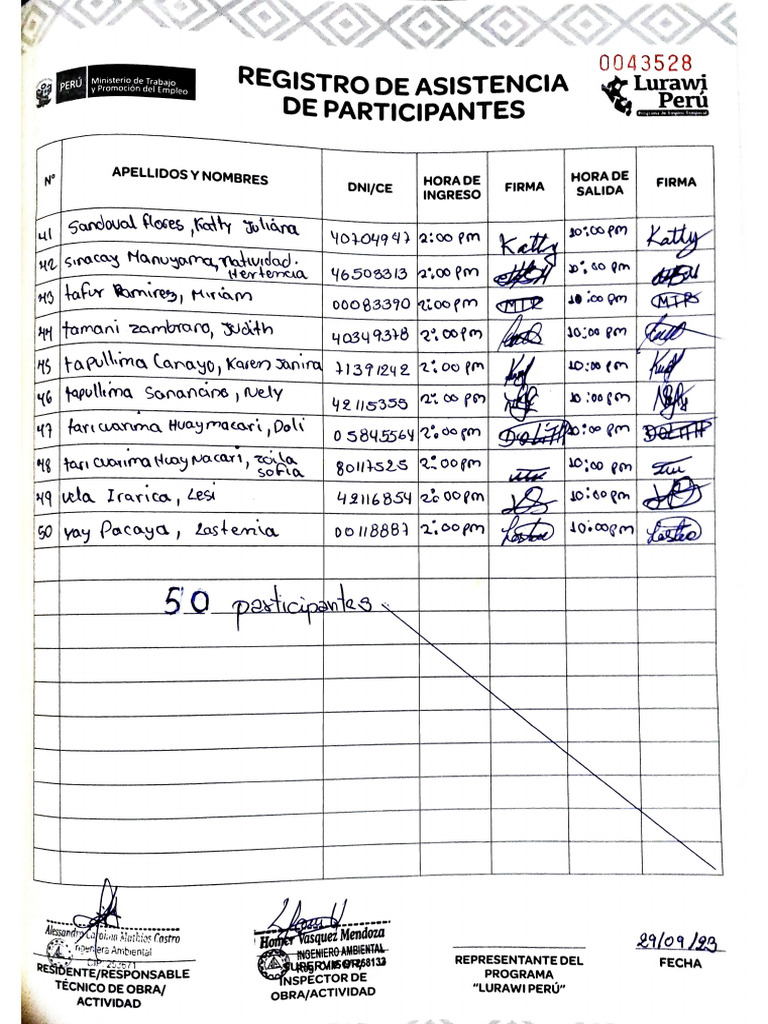 0043528
PERÚ Ministerio de Trabajo y Promoción del Empleo
REGISTRO DE ASISTENCIA DE PARTICIPANTES
Lurawi Perú
Programa de Empleo Temporal
Nº APELLIDOS Y NOMBRES DNI/CE HORA DE INGRESO FIRMA HORA DE SALIDA FIRMA
41 Sandoval flores, Katty Juliana 40704947 2:00 pm Katty 10:00 pm Katty
42 Sinacay Manuyama, Natividad Hertencia 46508313 2:00 pm 10:00 pm
43 tafur Ramirez, Miriam 00083390 2:00 pm MTR 10:00 pm MTR
44 tamani zambrano, Judith 40349378 2:00 pm 10:00 pm
45 tapullima Canayo, Karen Janina 71391242 2:00 pm 10:00 pm
46 tapullima Sanancino, Nely 42115355 2:00 pm 10:00 pm
47 taricuarima Huaymacari, Doli 05845564 2:00 pm 10:00 pm
48 taricuarima Huaymacari, zoila sofia 80117525 2:00 pm 10:00 pm
49 vela Irarica, Lesi 42116854 2:00 pm 10:00 pm
50 yay Pacaya, Lastenia 00118887 2:00 pm 10:00 pm
50 participantes
Alessandra Carolina Mathios Castro
Ingeniera Ambiental
RESIDENTE/RESPONSABLE
TÉCNICO DE OBRA/
ACTIVIDAD
Homer Vasquez Mendoza
INGENIERO AMBIENTAL
SUPERVISOR/
INSPECTOR DE
OBRA/ACTIVIDAD
REPRESENTANTE DEL
PROGRAMA
"LURAWI PERÚ"
29/09/23
FECHA